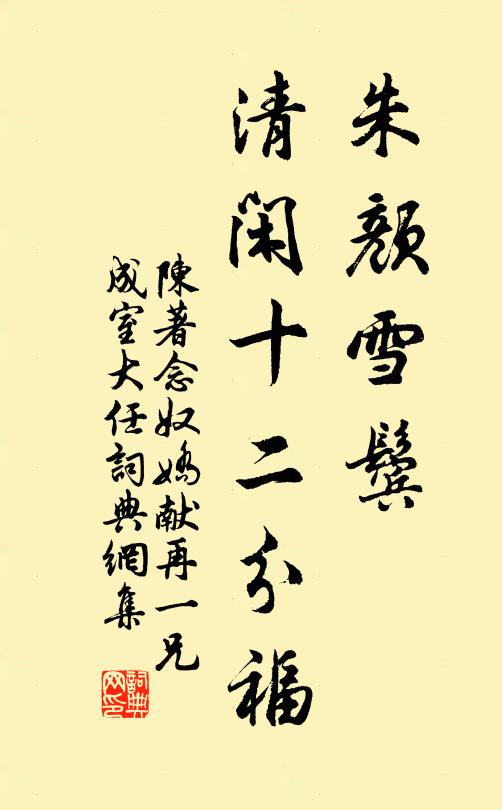 朱顏雪鬢
清閑十二分福
陳著念奴嬌献再一兄
成室大任詞典網集
詞典
网印